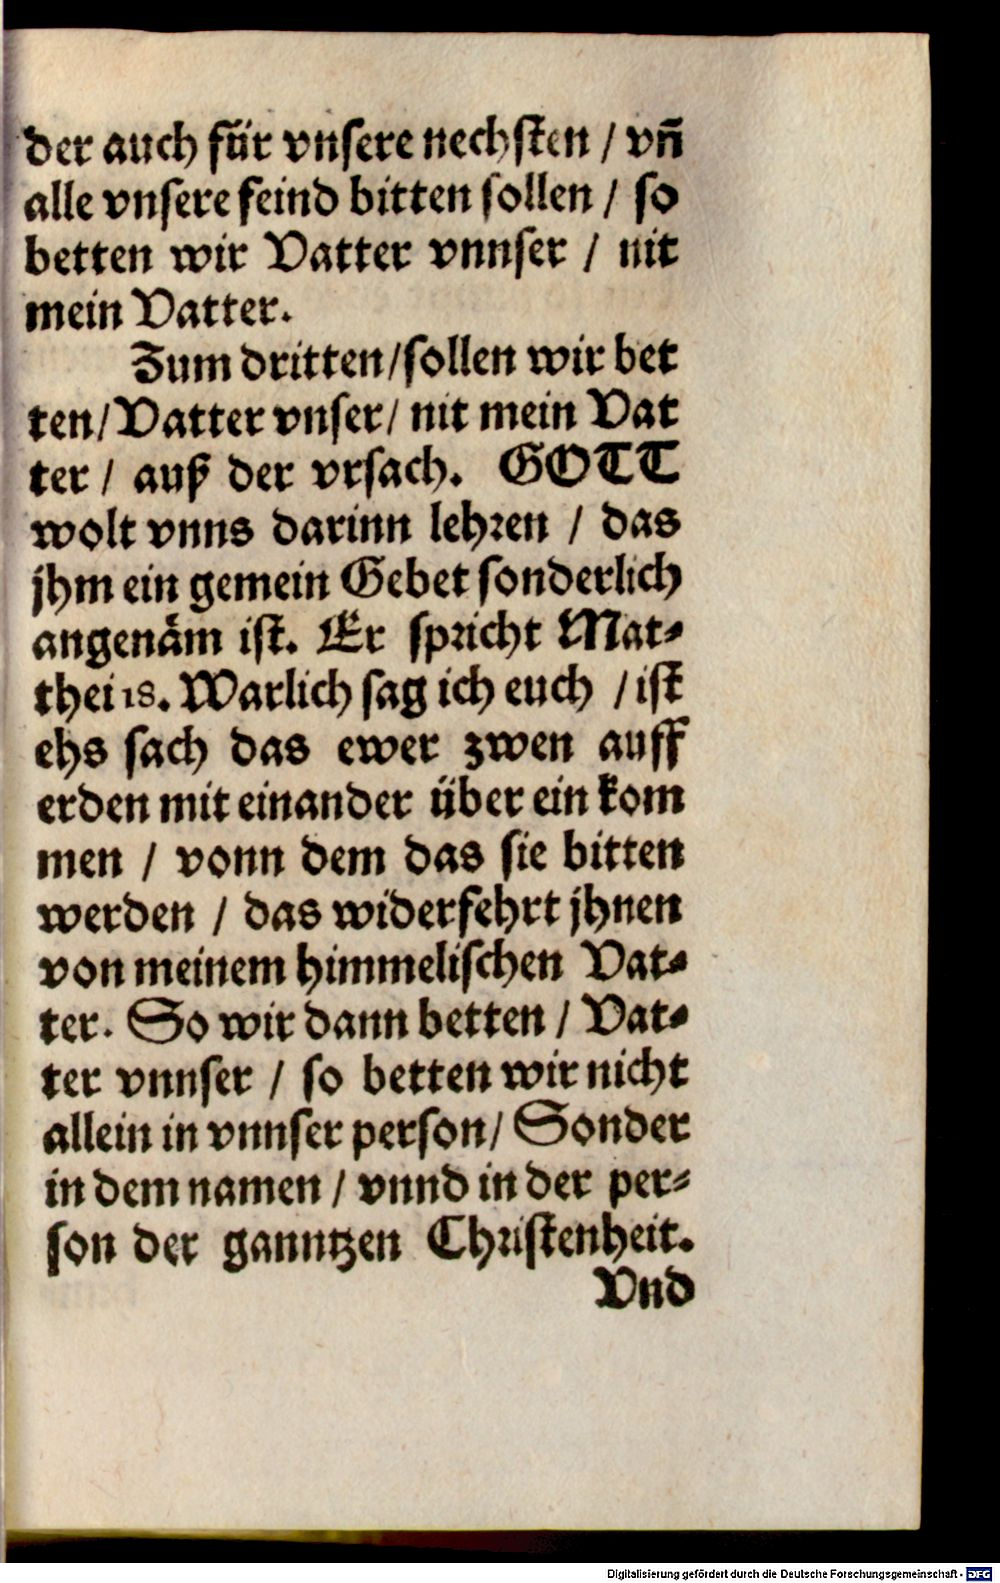 der auch für vnsere nechsten / vñ
alle vnsere feind bitten sollen / so
betten wir Vatter vnnser / nit
mein Vatter.
Zum dritten/sollen wir bet
ten/Vatter vnser/ nit mein Vat
ter / auß der vrsach. GOTT
wolt vnns darinn lehren / das
jhm ein gemein Gebet sonderlich
angenäm ist. Er spricht Mat-
thei 18. Warlich sag ich euch / ist
ehs sach das ewer zwen auff
erden mit einander über ein kom
men / vonn dem das sie bitten
werden / das widerfehrt jhnen
von meinem himmelischen Vat-
ter. So wir dann betten / Vat-
ter vnnser / so betten wir nicht
allein in vnnser person/ Sonder
in dem namen / vnnd in der per-
son der ganntzen Christenheit.
Vnd
Digitalisierung gefördert durch die Deutsche Forschungsgemeinschaft - DFG